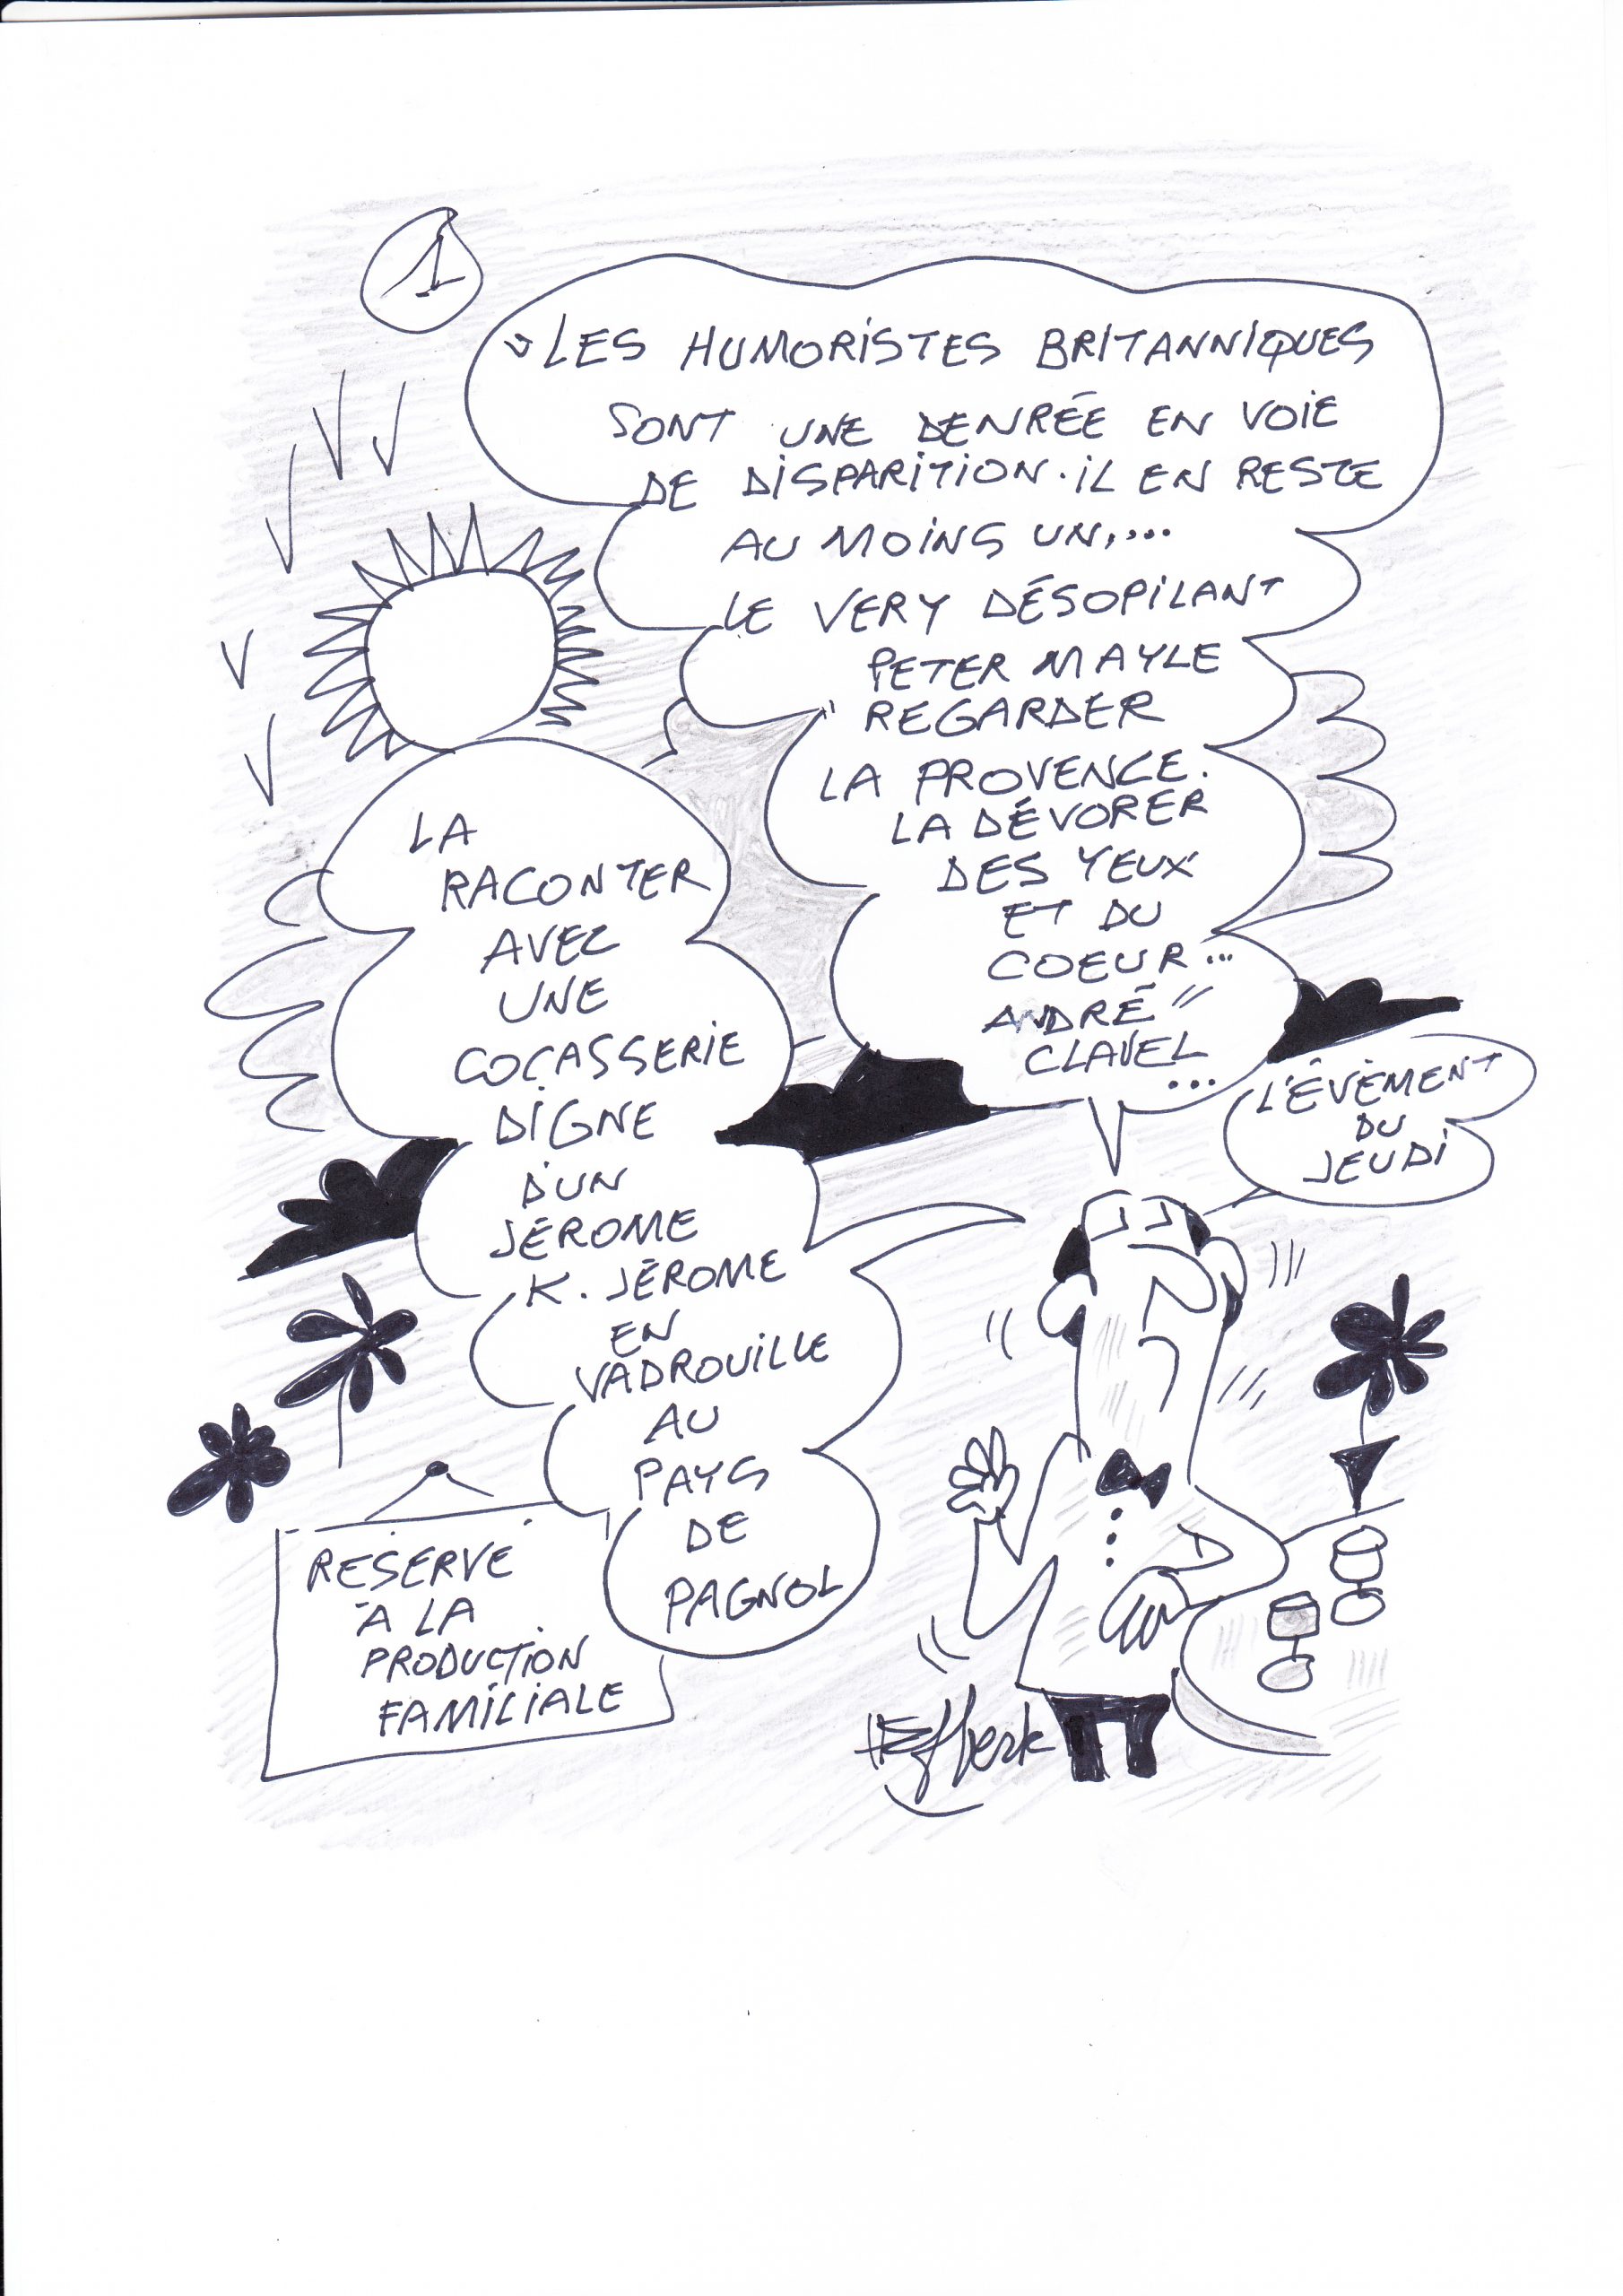 1
"LES HUMORISTES BRITANNIQUES
SONT UNE DENRÉE EN VOIE
DE DISPARITION. IL EN RESTE
AU MOINS UN,...
LE VERY DÉSOPILANT
PETER MAYLE
" REGARDER
LA PROVENCE.
LA DÉVORER
DES YEUX
ET DU
COEUR...
ANDRÉ "
CLAVEL
...
L'ÉVÈMENT
DU
JEUDI
LA
RACONTER
AVEC
UNE
COCASSERIE
DIGNE
D'UN
JÉROME
K. JÉROME
EN
VADROUILLE
AU
PAYS
DE
PAGNOL
RESERVE
À LA
PRODUCTION
FAMILIALE